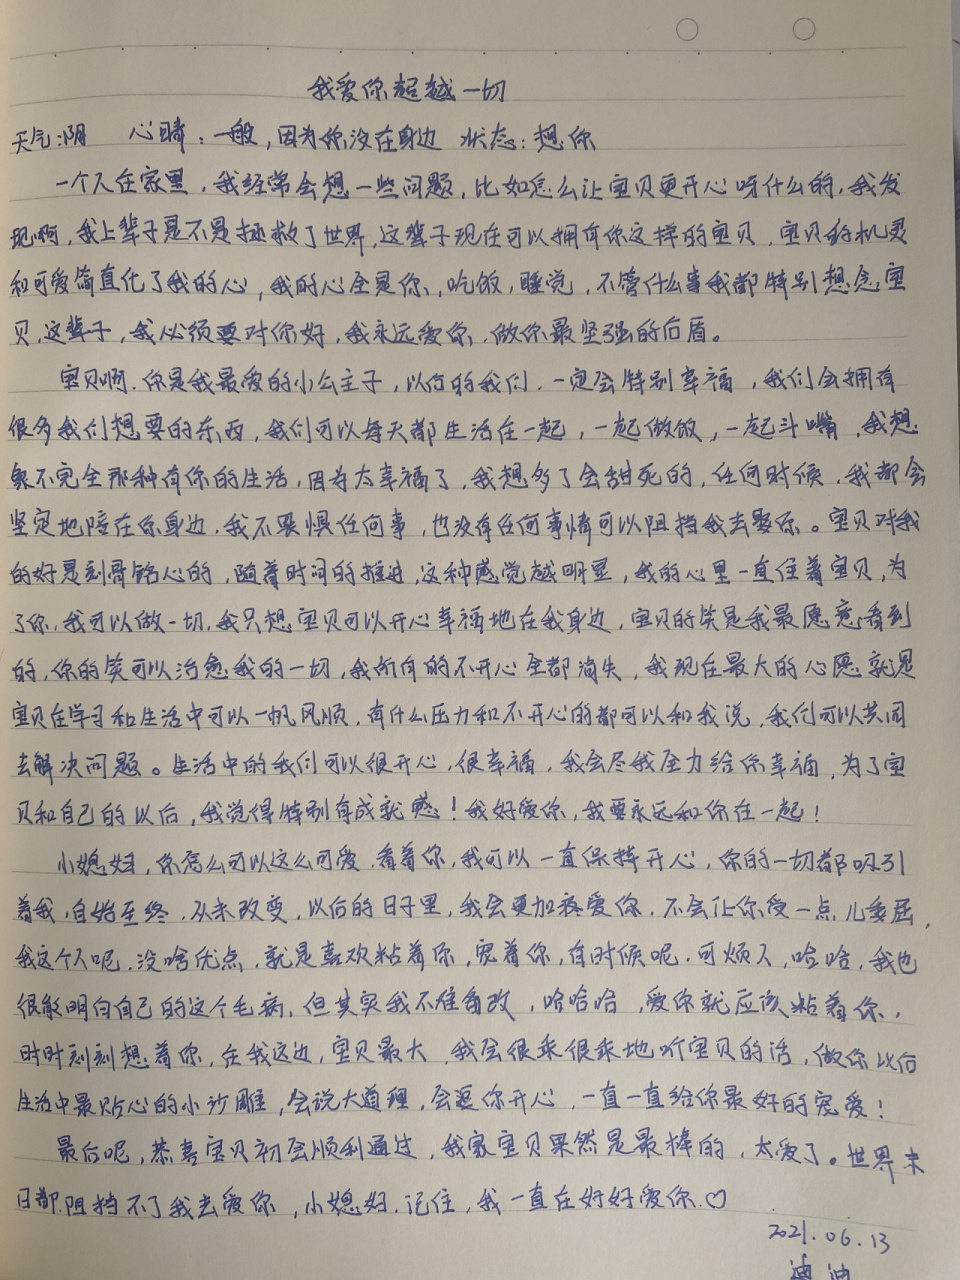 我爱你超越一切
天气:阴 心晴:一般,因为你没在身边 状态:想你
一个人在家里,我经常会想一些问题,比如怎么让宝贝更开心呀什么的,我发
现啊,我上辈子是不是拯救了世界,这辈子现在可以拥有你这样的宝贝,宝贝的机灵
和可爱简直化了我的心,我的心全是你,吃饭,睡觉,不管什么事我都特别想念宝
贝,这辈子,我必须要对你好,我永远爱你,做你最坚强的后盾。
宝贝啊,你是我最爱的小公主子,以后的我们,一定会特别幸福,我们会拥有
很多我们想要的东西,我们可以每天都生活在一起,一起做饭,一起斗嘴,我想
象不完全那种有你的生活,因为太幸福了,我想多了会甜死的,任何时候,我都会
坚定地陪在你身边,我不畏惧任何事,也没有任何事情可以阻挡我去娶你。宝贝对我
的好是刻骨铭心的,随着时间的推进,这种感觉越明显,我的心里一直住着宝贝,为
了你,我可以做一切,我只想宝贝可以开心幸福地在我身边,宝贝的笑是我最愿意看到
的,你的笑可以治愈我的一切,我所有的不开心全都消失,我现在最大的心愿就是
宝贝在学习和生活中可以一帆风顺,有什么压力和不开心的都可以和我说,我们可以共同
去解决问题。生活中的我们可以很开心,很幸福,我会尽我全力给你幸福,为了宝
贝和自己的以后,我觉得特别有成就感!我好爱你,我要永远和你在一起!
小媳妇,你怎么可以这么可爱,看着你,我可以一直保持开心,你的一切都吸引
着我,自始至终,从未改变,以后的日子里,我会更加疼爱你,不会让你受一点儿委屈,
我这个人呢,没啥优点,就是喜欢粘着你,宠着你,有时候呢,可烦人,哈哈,我也
很能明白自己的这个毛病,但其实我不准备改,哈哈哈,爱你就应该粘着你,
时时刻刻想着你,在我这边,宝贝最大,我会很乖很乖地听宝贝的话,做你以后
生活中最贴心的小沙雕,会说大道理,会逗你开心,一直一直给你最好的宠爱!
最后呢,恭喜宝贝初会顺利通过,我家宝贝果然是最棒的,太爱了。世界末
日都阻挡不了我去爱你,小媳妇,记住,我一直在好好爱你♡
2021.06.13